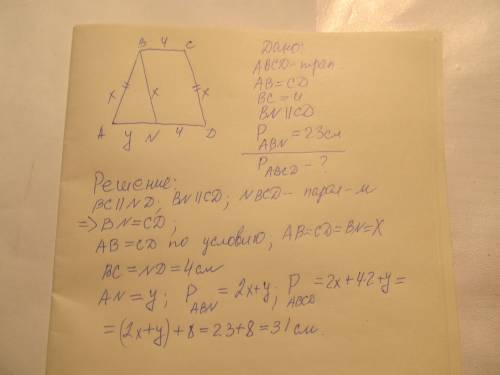 B 4 C
X X X
A y N 4 D
Дано:
ABCD - трап.
AB = CD
BC = 4
BN || CD
P ABN = 23 см
P ABCD - ?
Решение:
BC || ND; BN || CD; NBCD - парал-м
=> BN = CD;
AB = CD по условию, AB = CD = BN = X
BC = ND = 4 см
AN = y; P ABN = 2x+y; P ABCD = 2x+4·2+y =
= (2x+y) + 8 = 23+8 = 31 см.